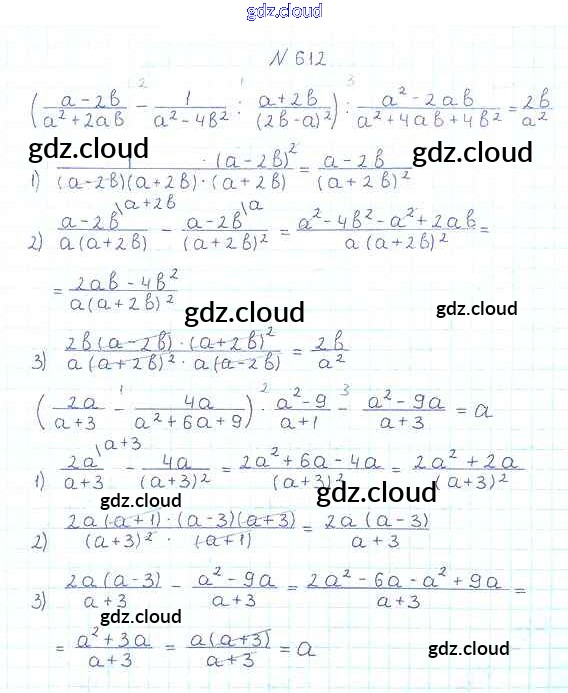 gdz.cloud
N 612
((a-2b)/(a²+2ab) ² - 1/(a²-4b²) ¹ : (a+2b)/(2b-a)²) ³ : (a²-2ab)/(a²+4ab+4b²) = 2b/a²
gdz.cloud gdz.cloud
1) 1·(a-2b)²/((a-2b)(a+2b)·(a+2b)) = (a-2b)/(a+2b)²
2) (a-2b)\a+2b/(a(a+2b)) - (a-2b)\a/(a+2b)² = (a²-4b²-a²+2ab)/(a(a+2b)²) =
= (2ab-4b²)/(a(a+2b)²)
gdz.cloud gdz.cloud
3) 2b(a-2b)·(a+2b)²/(a(a+2b)²·a(a-2b)) = 2b/a²
(2a/(a+3) ¹ - 4a/(a²+6a+9)) ² · (a²-9)/(a+1) ³ - (a²-9a)/(a+3) = a
1) 2a\a+3/(a+3) - 4a/(a+3)² = (2a²+6a-4a)/(a+3)² = (2a²+2a)/(a+3)²
gdz.cloud gdz.cloud
2) 2a(a+1)·(a-3)(a+3)/((a+3)²·(a+1)) = 2a(a-3)/(a+3)
3) 2a(a-3)/(a+3) - (a²-9a)/(a+3) = (2a²-6a-a²+9a)/(a+3) =
gdz.cloud gdz.cloud
= (a²+3a)/(a+3) = a(a+3)/(a+3) = a